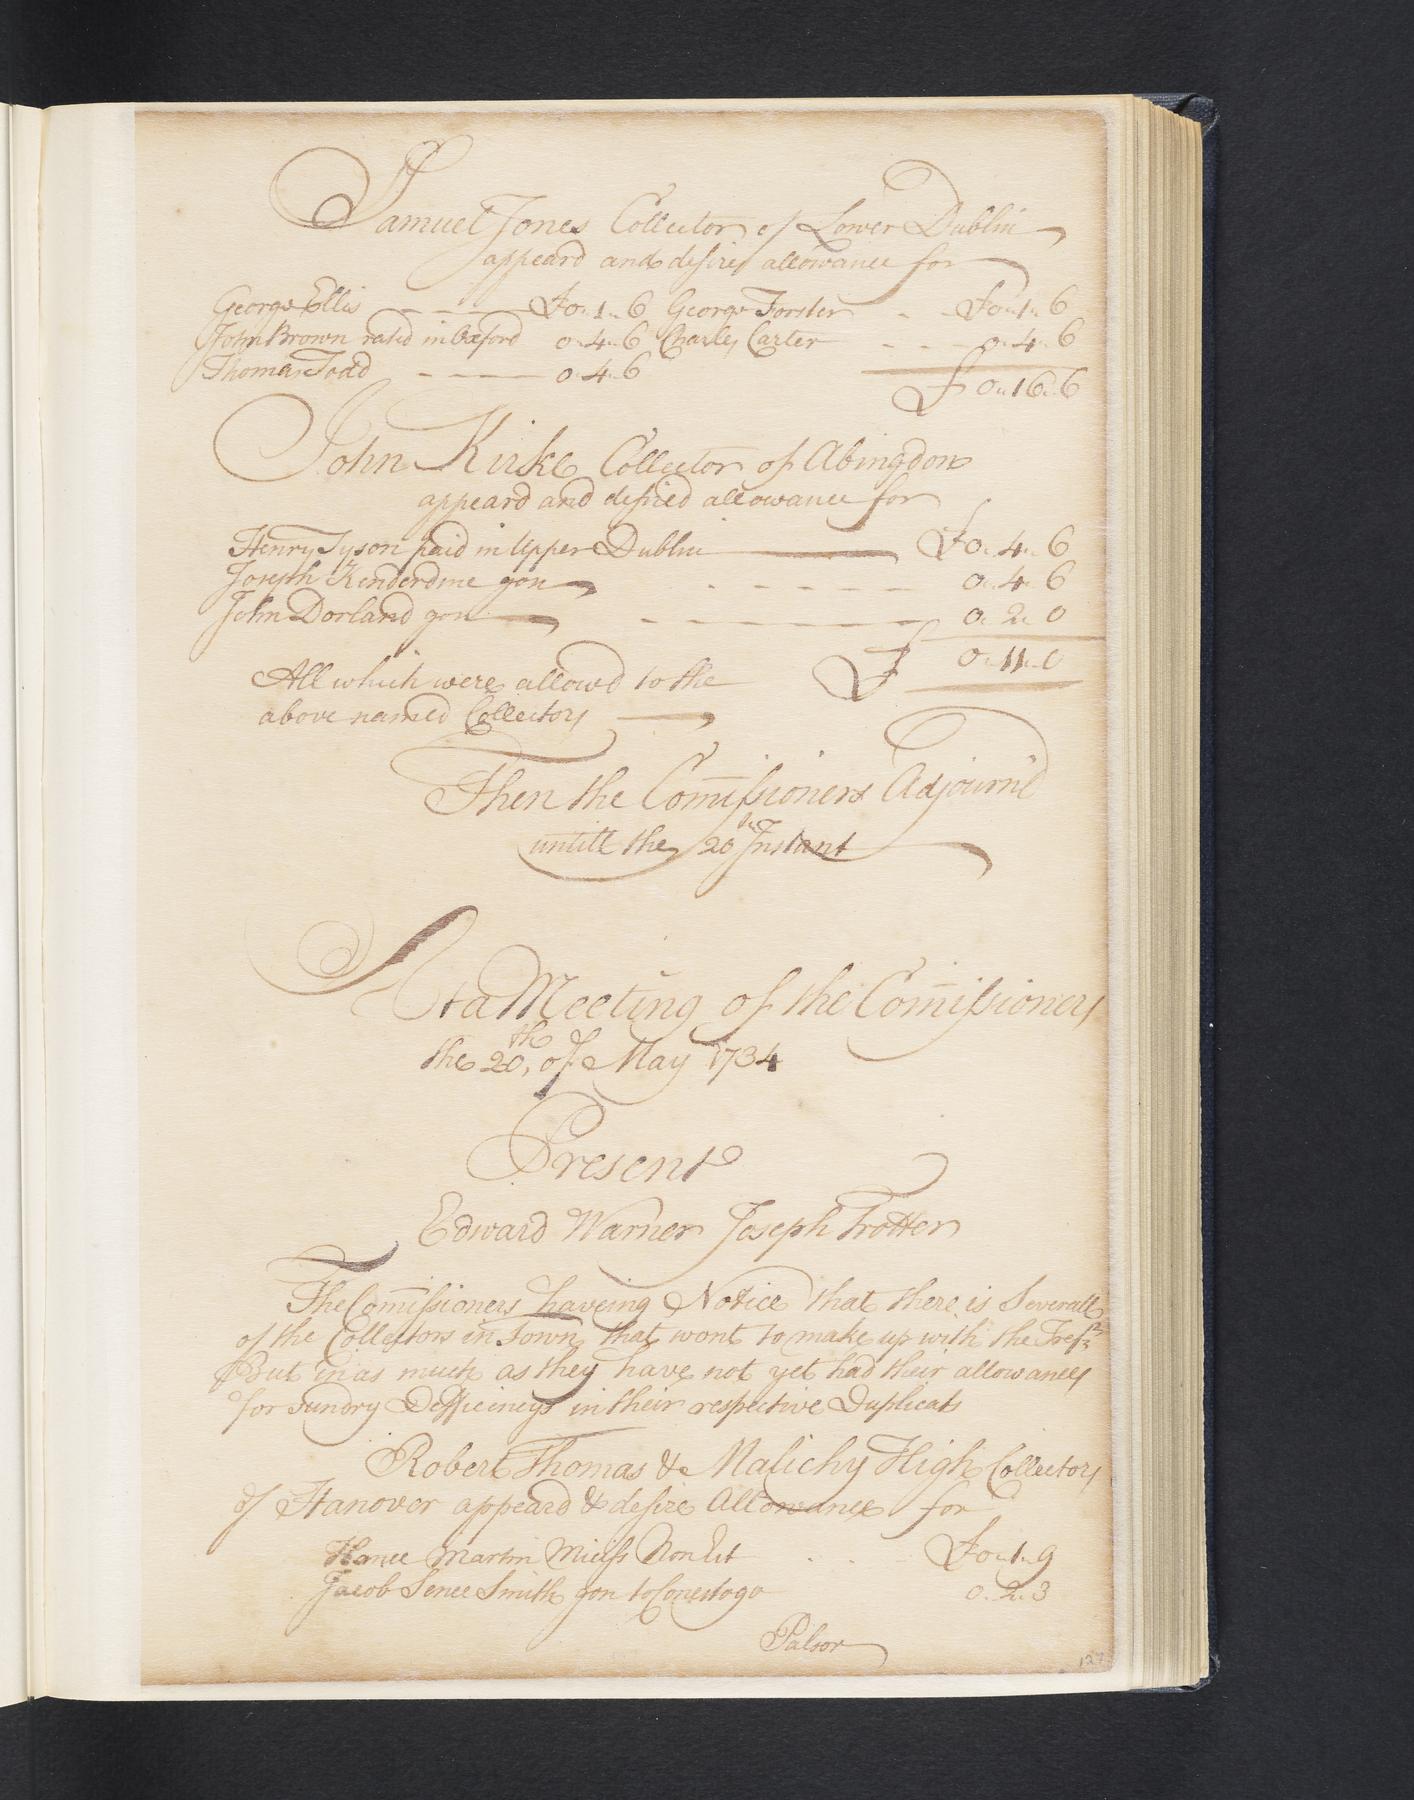 Samuel Jones Collector of Lower Dublin
appeard and desires allowance for
George Ellis £0..1..6 George Forster £0..1..6
John Brown rated in Oxford 0..4..6 Charles Carter 0..4..6
Thomas Todd 0..4..6
£0..16..6
John Kirke Collector of Abingdon
appeard and desired allowance for
Henry Tyson paid in Upper Dublin £0..4..6
Joseph Kenderdine gon 0..4..6
John Dorland gon 0..2..0
£ 0..11..0
All which were allowd to the
above named Collectors
Then the Com̄issioners Adjourn'd
untill the 20th Instant
At a Meeting of the Com̄issioners
the 20th, of May 1734
Present
Edward Warner Joseph Trotter
The Com̄issioners haveing Notice that there is Severall
of the Collectors in Town that wont to make up with the
But in as much as they have not yet had their allowances
for Sundry Defficincys in their respective Duplicats
Robert Thomas & Malichy High Collectors
of Hanover appeard & desire Allowance for
Hance Martin Non Est £0..1..9
Jacob Sence Smith gon to Conestogo 0..2..3
Palsor
127